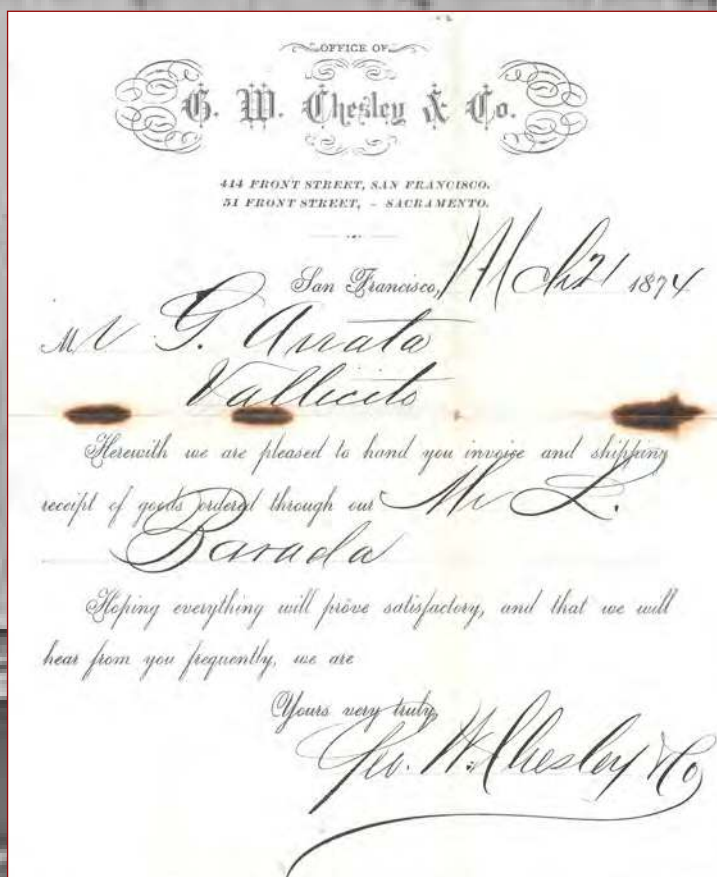 OFFICE OF
G. W. Chesley & Co.
414 FRONT STREET, SAN FRANCISCO.
51 FRONT STREET, - SACRAMENTO.
San Francisco, Mch 21 1874
Mr G. Arrata
Vallicito
Herewith we are pleased to hand you invoice and shipping
receipt of goods ordered through our Mr L.
Barada
Hoping everything will prove satisfactory, and that we will
hear from you frequently, we are
Yours very truly,
Geo. W. Chesley & Co